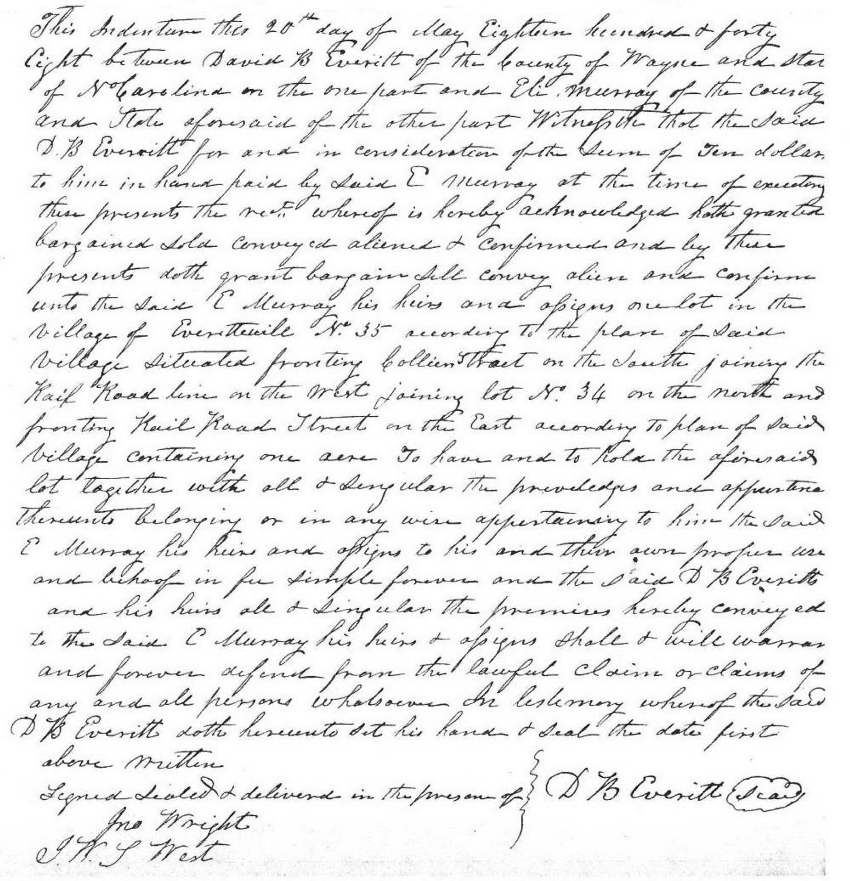 This Indenture this 20th day of May Eighteen hundred & forty
Eight between David B Everitt of the County of Wayne and State
of No Carolina on the one part and Eli Murray of the county
and State aforesaid of the other part Witnesseth that the said
D. B Everitt for and in consideration of the sum of Ten dollars
to him in hand paid by said E Murray at the time of executing
these presents the rect. whereof is hereby acknowledged hath granted
bargained sold conveyed aliened & confirmed and by these
presents doth grant bargain sell convey alien and confirm
unto the said E Murray his heirs and assigns one lot in the
village of Everittsville No. 35 according to the plan of said
village situated fronting Collier Street on the South joining the
Rail Road line on the West joining lot No. 34 on the north and
fronting Rail Road Street on the East according to plan of said
village containing one acre To have and to hold the aforesaid
lot together with all & singular the priveledges and appurtena
thereunto belonging or in any wise appertaining to him the said
E Murray his heirs and assigns to his and their own proper use
and behoof in fee simple forever and the said D B Everitt
and his heirs all & singular the premises hereby conveyed
to the said E Murray his heirs & assigns shall & will warran
and forever defend from the lawful claim or claims of
any and all persons whatsoever In testemony whereof the said
D B Everitt doth hereunto set his hand & seal the date first
above written
Signed sealed & deliverd in the presence of } D B Everitt (seal)
Jno Wright
J. W. S West